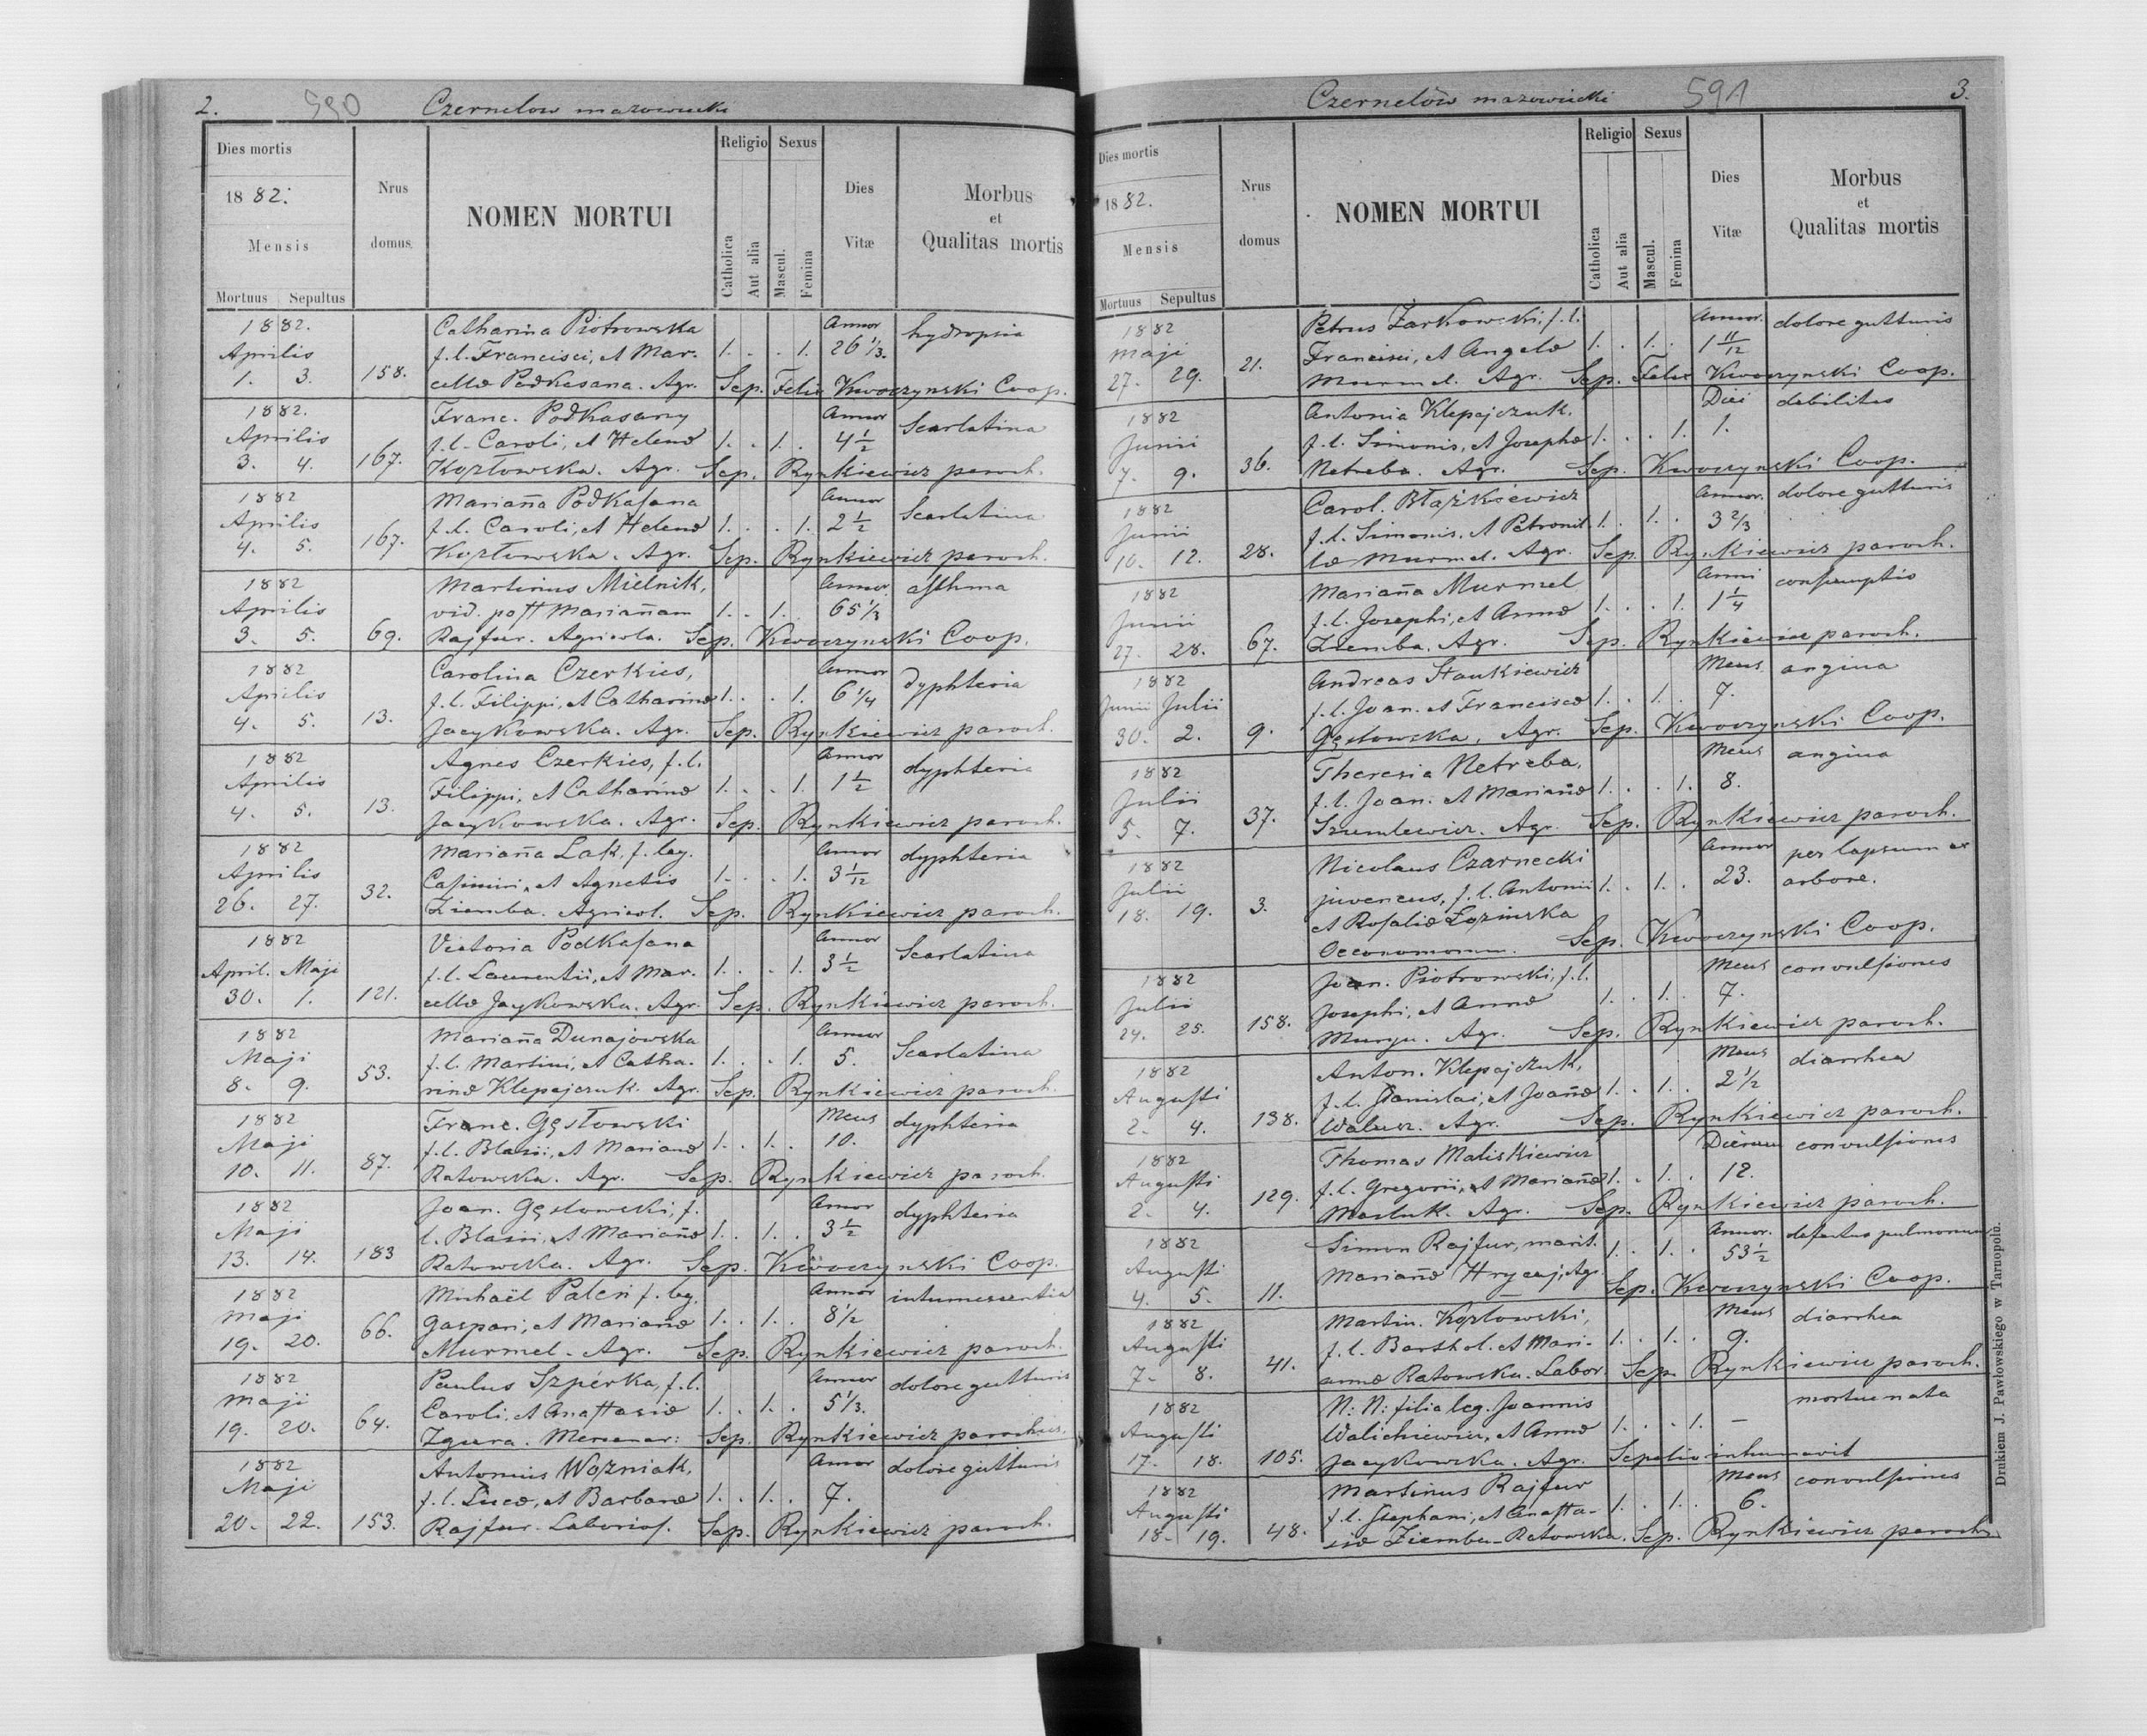 2. 590 Czernelow mazowiecki
Dies mortis
1882.
Mensis
Mortuus Sepultus
Nrus domus
NOMEN MORTUI
Religio Sexus
Catholica Aut alia Mascul. Femina
Dies Vitæ
Morbus et Qualitas mortis
1882. Catharina Piotrowska Annor hydropsia
Aprilis f. l. Francisci, et Mar- 1. . . 1. 26 1/3.
1. 3. 158. cellæ Podkasana. Agr. Sep. Felix Kwoczynski Coop.
1882. Franc. Podkasany Annor Scarlatina
Aprilis f. l. Caroli, et Helenæ 1. . 1. . 4 1/2
3. 4. 167. Kozłowska. Agr. Sep. Rynkiewicz paroch.
1882 Marian̄a Podkasana Annor Scarlatina
Aprilis f. l. Caroli, et Helenæ 1. . . 1. 2 1/2
4. 5. 167. Kozłowska. Agr. Sep. Rynkiewicz paroch.
1882 Martinus Mielnik, Annor asthma
Aprilis vid. post Marian̄am 1. . 1. . 65 1/3
3. 5. 69. Rajfur. Agricola. Sep. Kwoczynski Coop.
1882 Carolina Czerkies, Annor dyphteria
Aprilis f. l. Filippi, et Catharinæ 1. . . 1. 6 1/4
4. 5. 13. Jacykowska. Agr. Sep. Rynkiewicz paroch.
1882 Agnes Czerkies, f. l. Annor dyphteria
Aprilis Filippi, et Catharinæ 1. . . 1. 1 1/2
4. 5. 13. Jacykowska. Agr. Sep. Rynkiewicz paroch.
1882 Marian̄a Lak, f. leg. Annor dyphteria
Aprilis Casimiri, et Agnetis 1. . . 1. 3 1/12
26. 27. 32. Ziemba. Agricol. Sep. Rynkiewicz paroch.
1882 Victoria Podkasana Annor Scarlatina
April. Maji f. l. Laurentii, et Mar- 1. . . 1. 3 1/2
30. 1. 121. cellæ Jacykowska. Agr. Sep. Rynkiewicz paroch.
1882 Marian̄a Dunajowska Annor Scarlatina
Maji f. l. Martini, et Catha- 1. . . 1. 5.
8. 9. 53. rinæ Klepajczuk. Agr. Sep. Rynkiewicz paroch.
1882 Franc. Gęstowski Mens dyphteria
Maji f. l. Blasii, et Marianæ 1. . 1. . 10.
10. 11. 87. Ratowska. Agr. Sep. Rynkiewicz paroch.
1882 Joan. Gęstowski, f. Annor dyphteria
Maji l. Blasii, et Marian̄æ 1. . 1. . 3 1/2
13. 14. 183 Ratowska. Agr. Sep. Kwoczynski Coop.
1882 Michaël Paleń f. leg. Annor intumescentia
Maji Gaspari, et Marianæ 1. . 1. . 8 1/2
19. 20. 66. Murmel. Agr. Sep. Rynkiewicz paroch.
1882 Paulus Szpérka, f. l. Annor dolore gutturis
Maji Caroli, et Anastasiæ 1. . 1. . 5 1/3.
19. 20. 64. Zgura. Mercenar: Sep. Rynkiewicz parochus.
1882 Antonius Woźniak, Annor dolore gutturis
Maji f. l. Lucæ, et Barbaræ 1. . 1. . 7.
20. 22. 153. Rajfur. Laborios. Sep. Rynkiewicz paroch.
Czernelów mazowiecki 591 3.
Dies mortis
1882.
Mensis
Mortuus Sepultus
Nrus domus
NOMEN MORTUI
Religio Sexus
Catholica Aut alia Mascul. Femina
Dies Vitæ
Morbus et Qualitas mortis
1882 Petrus Żarkowski, f. l. Annor. dolore gutturis
Maji Francisci, et Angelæ 1. . 1. . 1 11/12
27. 29. 21. Murmel. Agr. Sep. Felix Kwoczynski Coop.
1882 Antonia Klepajczuk. Diei debilitas
Junii f. l. Simonis, et Josephæ 1. . . 1. 1.
7. 9. 36. Netreba. Agr. Sep. Kwoczynski Coop.
1882 Carol. Błażkiewicz Annor. dolore gutturis
Junii f. l. Simonis, et Petronil- 1. . 1. . 3 2/3
10. 12. 28. læ Murmel. Agr. Sep. Rynkiewicz paroch.
1882 Marian̄a Murmel Anni consumptio
Junii f. l. Josephi, et Annæ 1. . . 1. 1 1/4
27. 28. 67. Ziemba. Agr. Sep. Rynkiewicz paroch.
1882 Andreas Stankiewicz Mens angina
Junii Julii f. l. Joan. et Franciscæ 1. . 1. . 7.
30. 2. 9. Gęstowska, Agr. Sep. Kwoczynski Coop.
1882 Theresia Netreba, Mens angina
Julii f. l. Joan. et Marian̄æ 1. . . 1. 8.
5. 7. 37. Szumlewicz. Agr. Sep. Rynkiewicz paroch.
1882 Nicolaus Czarnecki Annor per lapsum ex
Julii juvencus, f. l. Antonii 1. . 1. . 23. arbore.
18. 19. 3. et Rosaliæ Łozinska
Oeconomorum. Sep. Kwoczynski Coop.
1882 Joan. Piotrowski, f. l. Mens convulsiones
Julii Josephi, et Annæ 1. . 1. . 7.
24. 25. 158. Agr. Sep. Rynkiewicz paroch.
1882 Anton. Klepajczuk, Mens diarrhea
Augusti f. l. Stanislai, et Joan̄æ 1. . 1. . 2 1/2
2. 4. 138. Walusz. Agr. Sep. Rynkiewicz paroch.
1882 Thomas Maliskiewicz Dierum convulsiones
Augusti f. l. Gregorii, et Marian̄æ 1. . 1. . 12.
2. 4. 129. Agr. Sep. Rynkiewicz paroch.
1882 Simon Rajfur, marit. Annor. defectus pulmonum
Augusti Marian̄æ Hrycaj, Agr. 1. . 1. . 53 1/2
4. 5. 11. Sep. Kwoczynski Coop.
1882 Martin. Kozłowski, Mens diarrhea
Augusti f. l. Barthol. et Mari- 1. . 1. . 9.
7. 8. 41. annæ Ratowska. Labor Sep. Rynkiewicz paroch.
1882 N: N: filia leg. Joannis mortue nata
Augusti Walichiewicz, et Annæ 1. . . 1. –
17. 18. 105. Jacykowska. Agr. inhumavit
1882 Martinus Rajfur Mens convulsiones
Augusti f. l. Stephani, et Anasta- 1. . 1. . 6.
18. 19. 48. siæ Ziemba-Ratowska. Sep. Rynkiewicz paroch.
Drukiem J. Pawłowskiego w Tarnopolu.